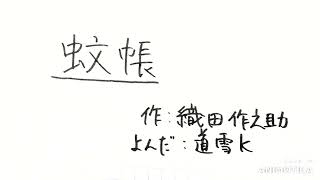 蚊帳
作:織田作之助
よんだ:道雪K